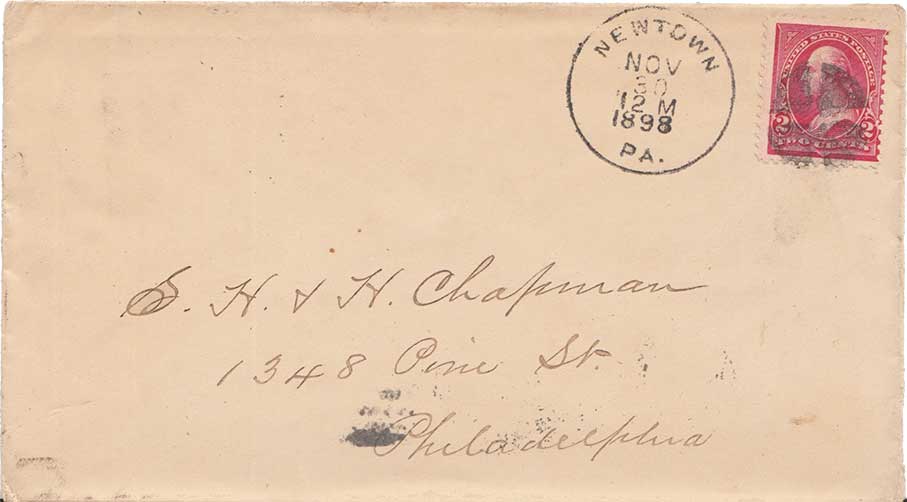 NEWTOWN
NOV
30
12 M
1898
PA.
UNITED STATES POSTAGE
2 2
TWO CENTS
S. H. & H. Chapman
1348 Pine St.
Philadelphia